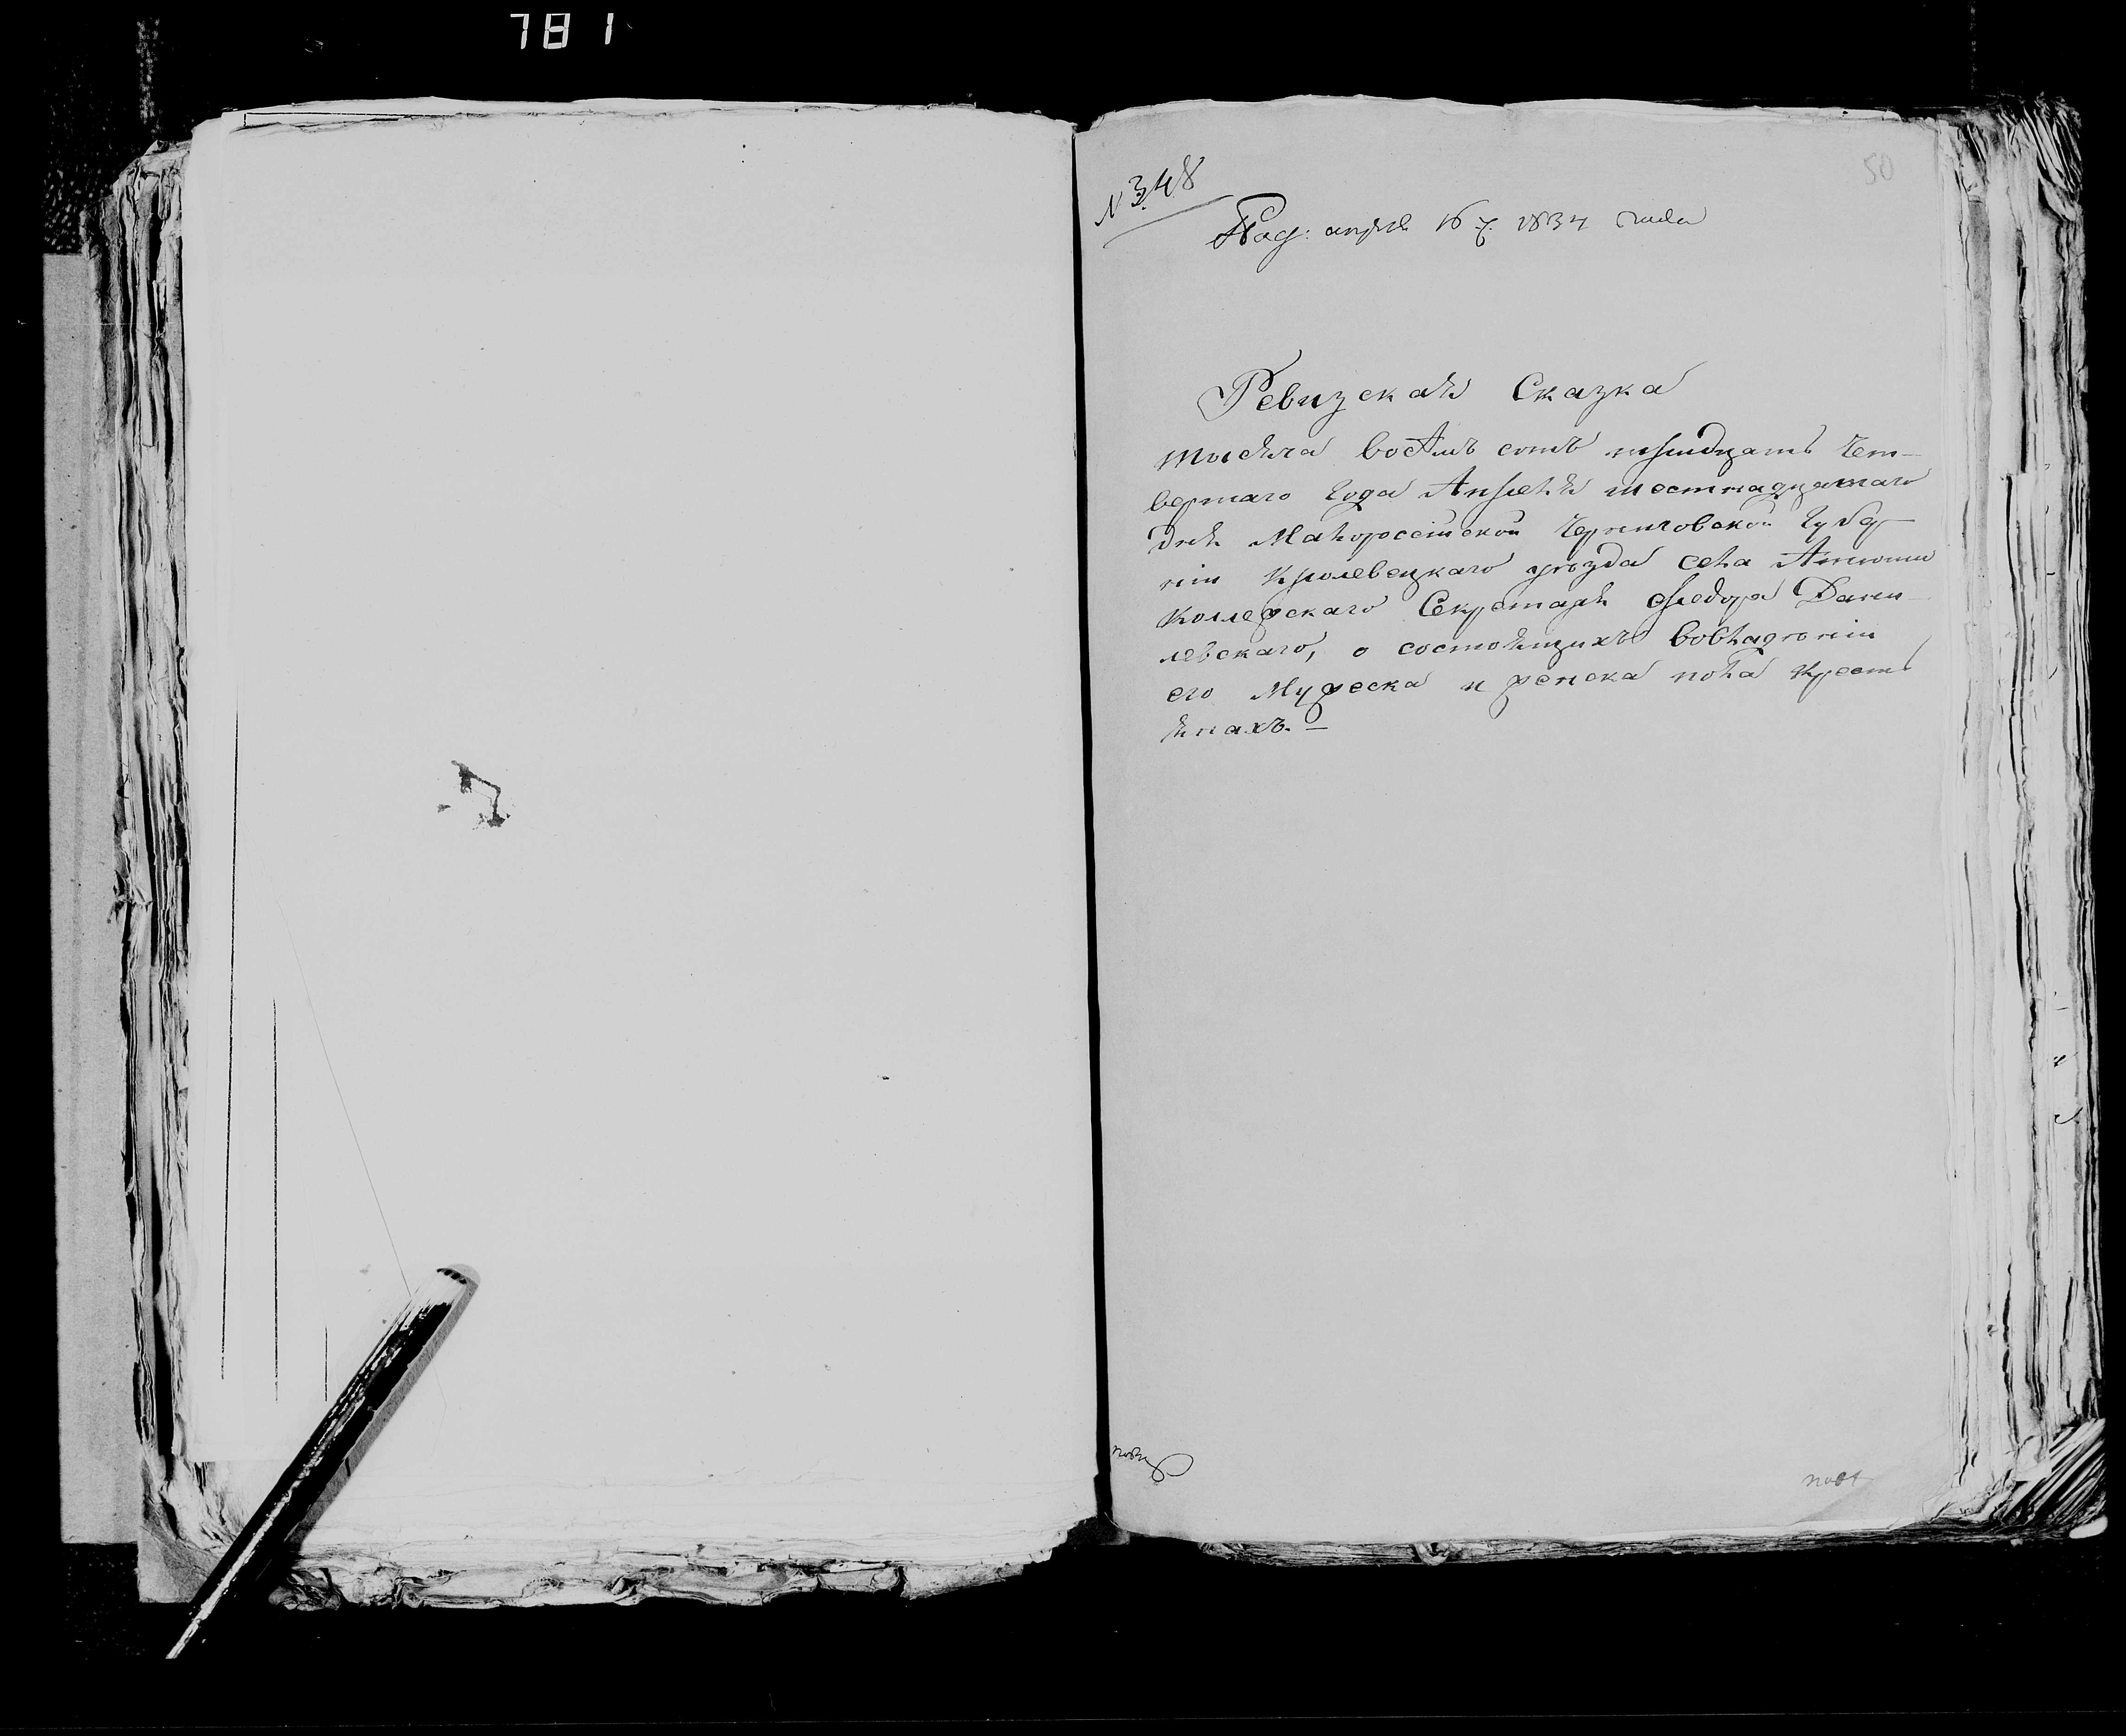 781
50
N 348
Под: апреля 16 д. 1834 года
Ревизская Сказка
тысяча восѣмъ сотъ тридцать чет-
вертаго года Апреля шестнадцатаго
дня Малоросейской Черниговской Губер
ніи Кролевецкаго уезда села
Колежскаго Секретаря Федора Дани-
левскаго, о состоящихъ вовладеніи
его Мужеска и женска пола крестъ
янахъ. —